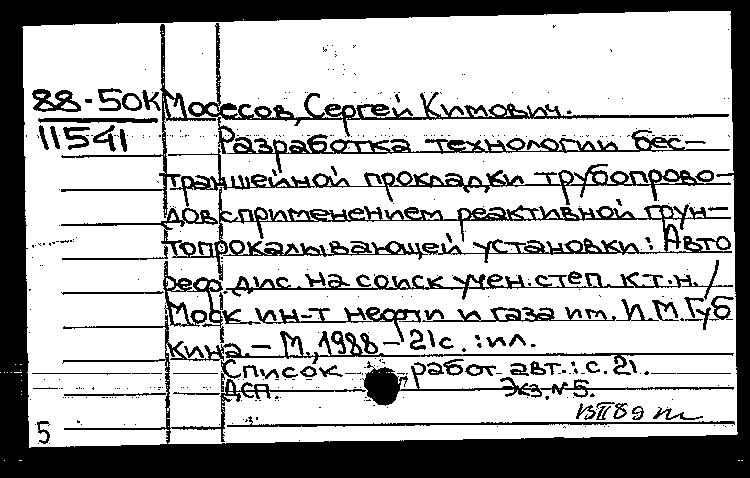 88-50К Мосесов, Сергей Кимович.
11541 Разработка технологии бес-
траншейной прокладки трубопрово-
дов с применением реактивной грун-
топрокалывающей установки: Авто
реф. дис. на соиск учен. степ. к.т.н. /
Моск. ин-т нефти и газа им. И.М Губ
кина. - М., 1988. - 21с. : ил.
Список работ авт.: с. 21.
ДСП. Экз. № 5.
5